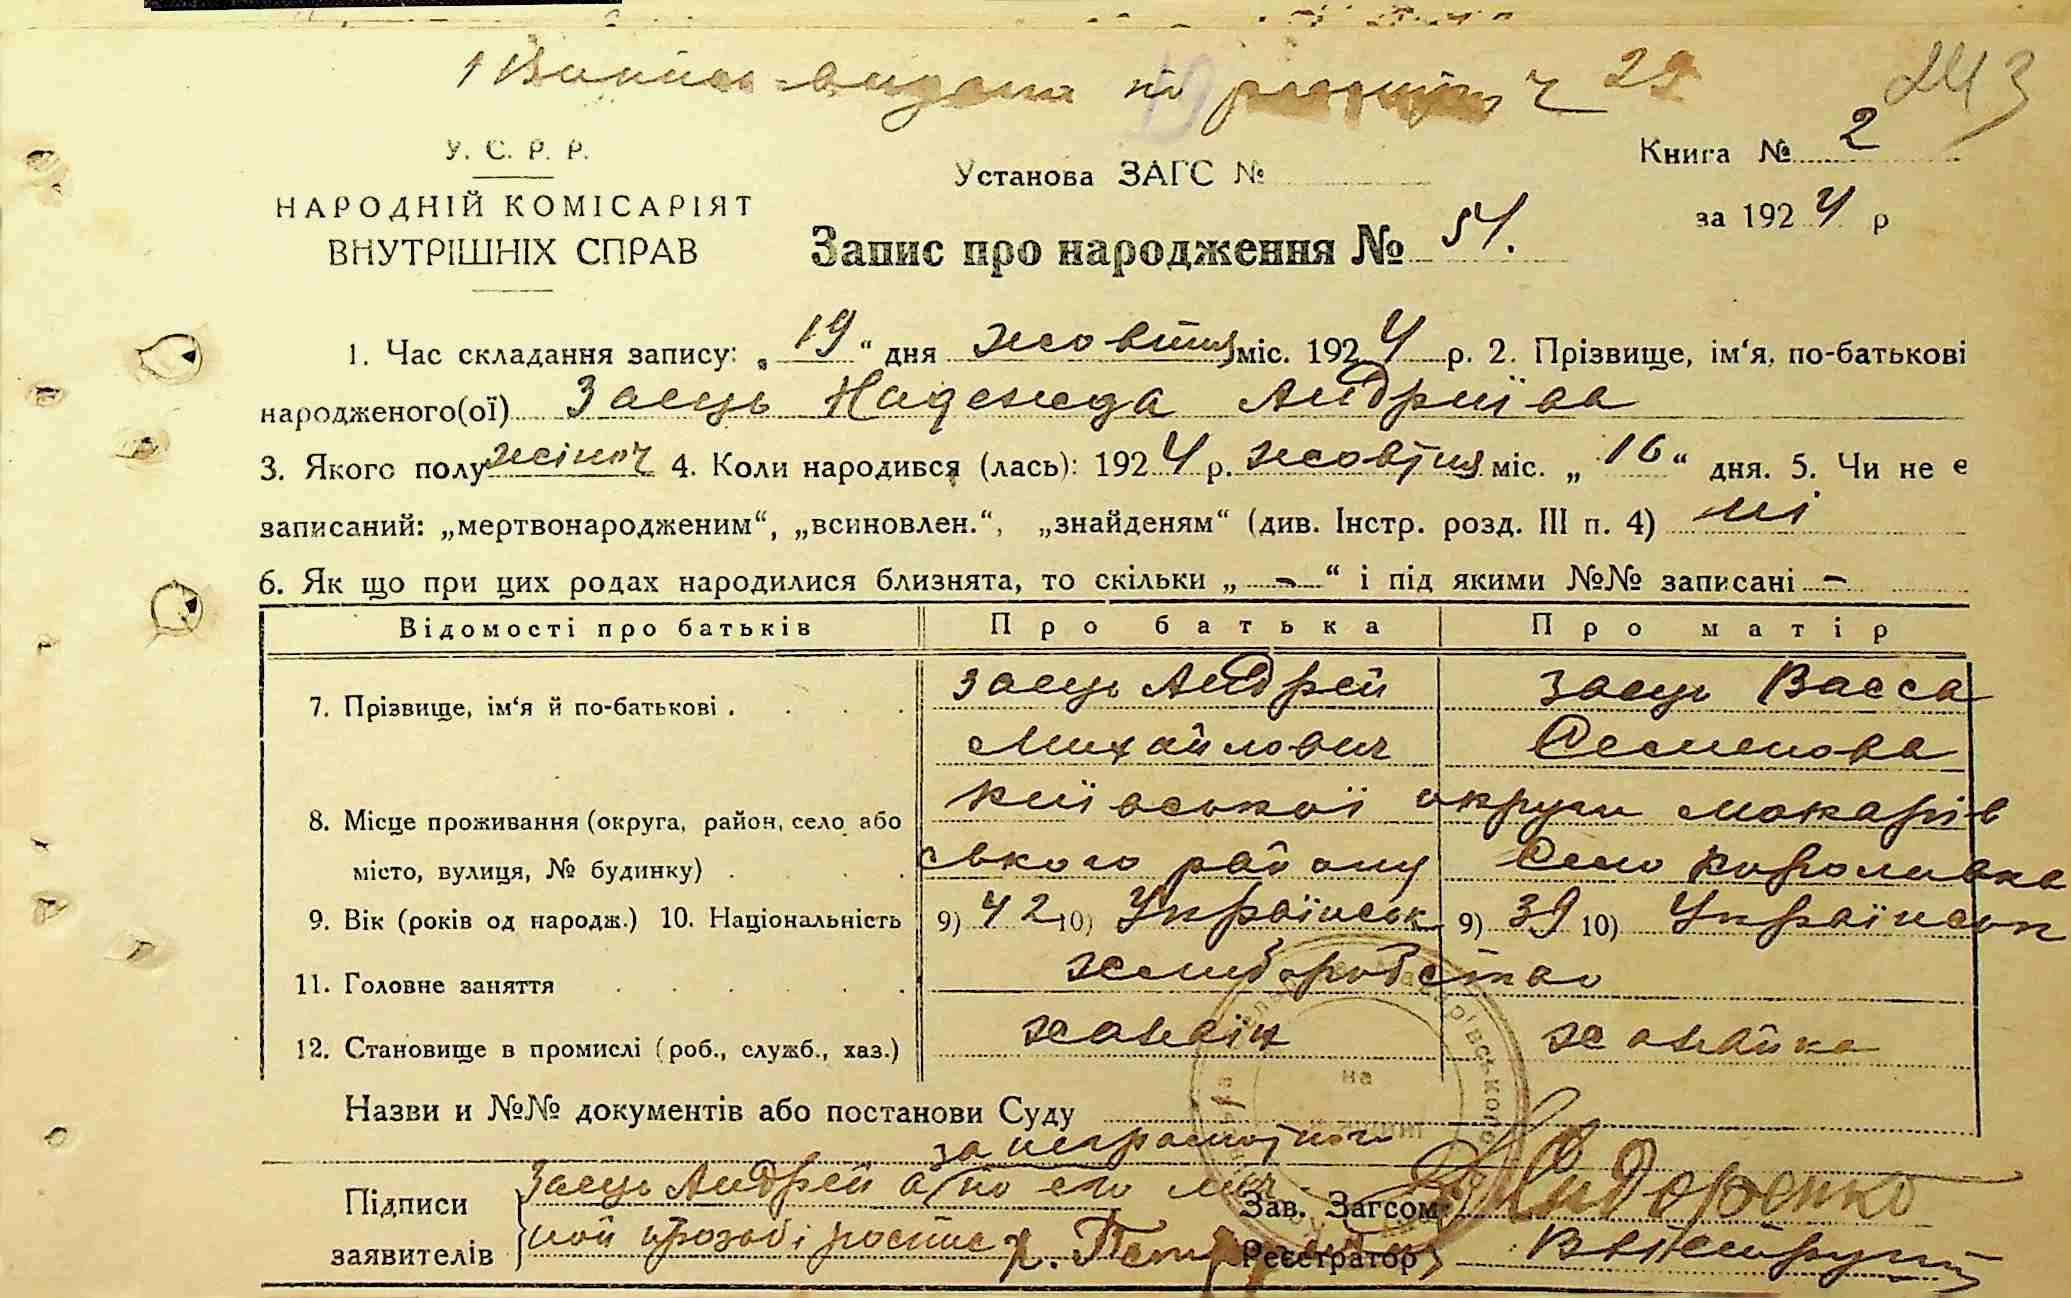 1 Випись видана по
243
У. С. Р. Р.
НАРОДНІЙ КОМІСАРІЯТ
ВНУТРІШНІХ СПРАВ
Установа ЗАГС №
Книга № 2
за 1924 р
Запис про народження № 54.
1. Час складання запису: „19“ дня жовтня міс. 1924 р. 2. Прізвище, ім‘я, по-батькові
народженого(ої) Заець Надежда Андриїва
3. Якого полу жіноч 4. Коли народився (лась): 1924 р. жовтня міс. „16“ дня. 5. Чи не є
записаний: „мертвонародженим“, „всиновлен.“, „знайденям“ (див. Інстр. розд. III п. 4) ні
6. Як що при цих родах народилися близнята, то скільки „-“ і під якими №№ записані -
Відомості про батьків Про батька Про матір
7. Прізвище, ім‘я й по-батькові . Заець Андрей Заець Васса
Михайлович Семенова
8. Місце проживання (округа, район, село або Київської округи Макарів
місто, вулиця, № будинку) . ського району Село Королівка
9. Вік (років од народж.) 10. Національність 9) 42 10) Українськ 9) 39 10) Українськ
11. Головне заняття хлиборобство
12. Становище в промислі (роб., служб., хаз.) хазаїн хазайка
Назви и №№ документів або постанови Суду
за неграмотного
Підписи Заець Андрей а по его лич- Зав. Загсом Сидоренко
заявителів ной прозьбі роспис Реєстратор